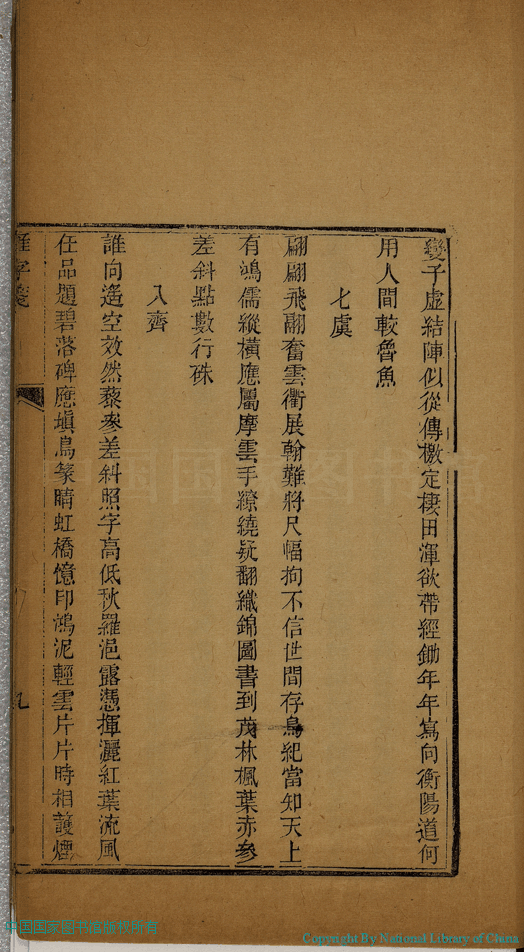 變子虛結陣似從傳檄定棲田渾欲帶經鋤年年寫向衡陽道何
用人間較魯魚
七虞
翩翩飛翮奮雲衢展翰難將尺幅拘不信世間存鳥紀當知天上
有鴻儒縱橫應屬摩雲手繚繞疑翻織錦圖書到茂林楓葉赤參
差斜點數行硃
八齊
誰向遙空效然藜參差斜照字高低秋羅浥露憑揮灑紅葉流風
任品題碧落碑應塡鳥篆晴虹橋憶印鴻泥輕雲片片時相護煙
雁字箋
九
中国国家图书馆
中国国家图书馆版权所有
Copyright By National Library of China